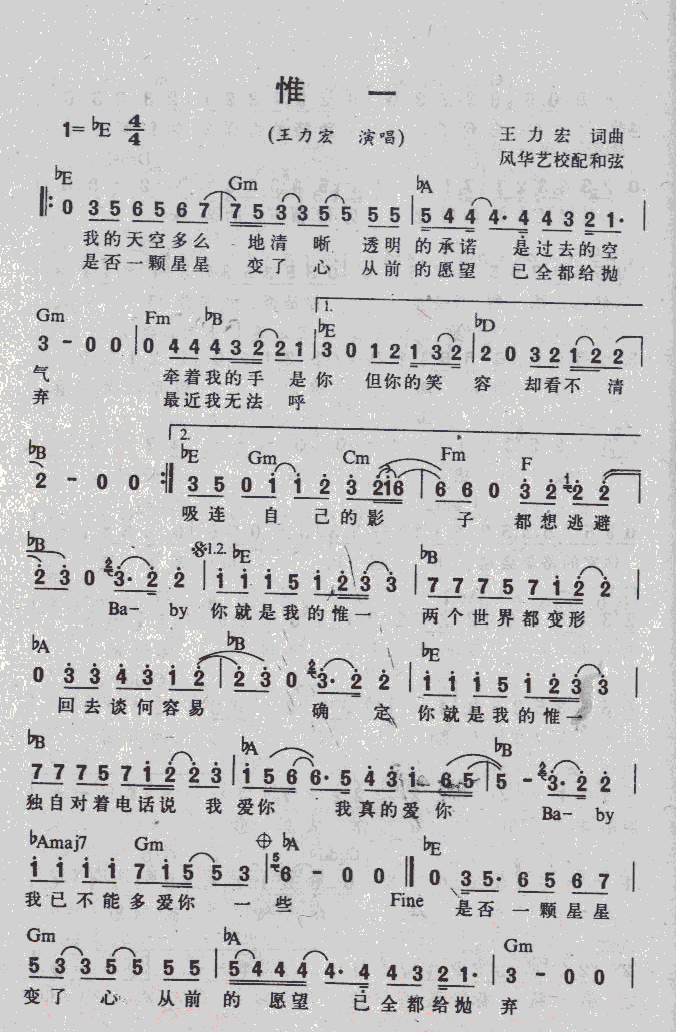 惟 一
1= ♭E 4/4 (王力宏 演唱) 王力宏 词曲
风华艺校配和弦
♭E Gm ♭A
0 3 5 6 5 6 7 7 5 3 3 5 5 5 5 5 4 4 4· 4 4 3 2 1·
我的天空多么 地清 晰 透明 的承诺 是过去的空
是否一颗星星 变了 心 从前 的愿望 已全都给抛
Gm Fm ♭B 1. ♭E ♭D
3 - 0 0 0 4 4 4 3 2 2 1 3 0 1 2 1 3 2 2 0 3 2 1 2 2
气 牵着我的手 是你 但你的笑 容 却看不 清
弃 最近我无法 呼
♭B 2. ♭E Gm Cm Fm F
2 - 0 0 3 5 0 1 1 2 3 2 1 6 6 6 0 3 2 1 2 2
吸连 自 己的影 子 都想逃避
♭B 1.2. ♭E ♭B
2 3 0 2 3· 2 2 1 1 1 5 1 2 3 3 7 7 7 5 7 1 2 2
Ba- by 你就是我的惟一 两个世界都变形
♭A ♭B ♭E
0 3 3 4 3 1 2 2 3 0 2 3· 2 2 1 1 1 5 1 2 3 3
回去谈何容易 确 定 你就是我的惟一
♭B ♭A ♭B
7 7 7 5 7 1 2 2 3 1 5 6 6· 5 4 3 1 6 5 5 - 2 3· 2 2
独自对着电话说 我 爱你 我真的爱 你 Ba- by
♭Amaj7 Gm ♭A ♭E
1 1 1 1 7 1 5 5 3 5 6 - 0 0 0 3 5· 6 5 6 7
我已不能多爱你 一 些 Fine 是否 一颗星星
Gm ♭A Gm
5 3 3 5 5 5 5 5 4 4 4 4· 4 4 3 2 1· 3 - 0 0
变了 心 从前 的 愿望 已全都给抛 弃